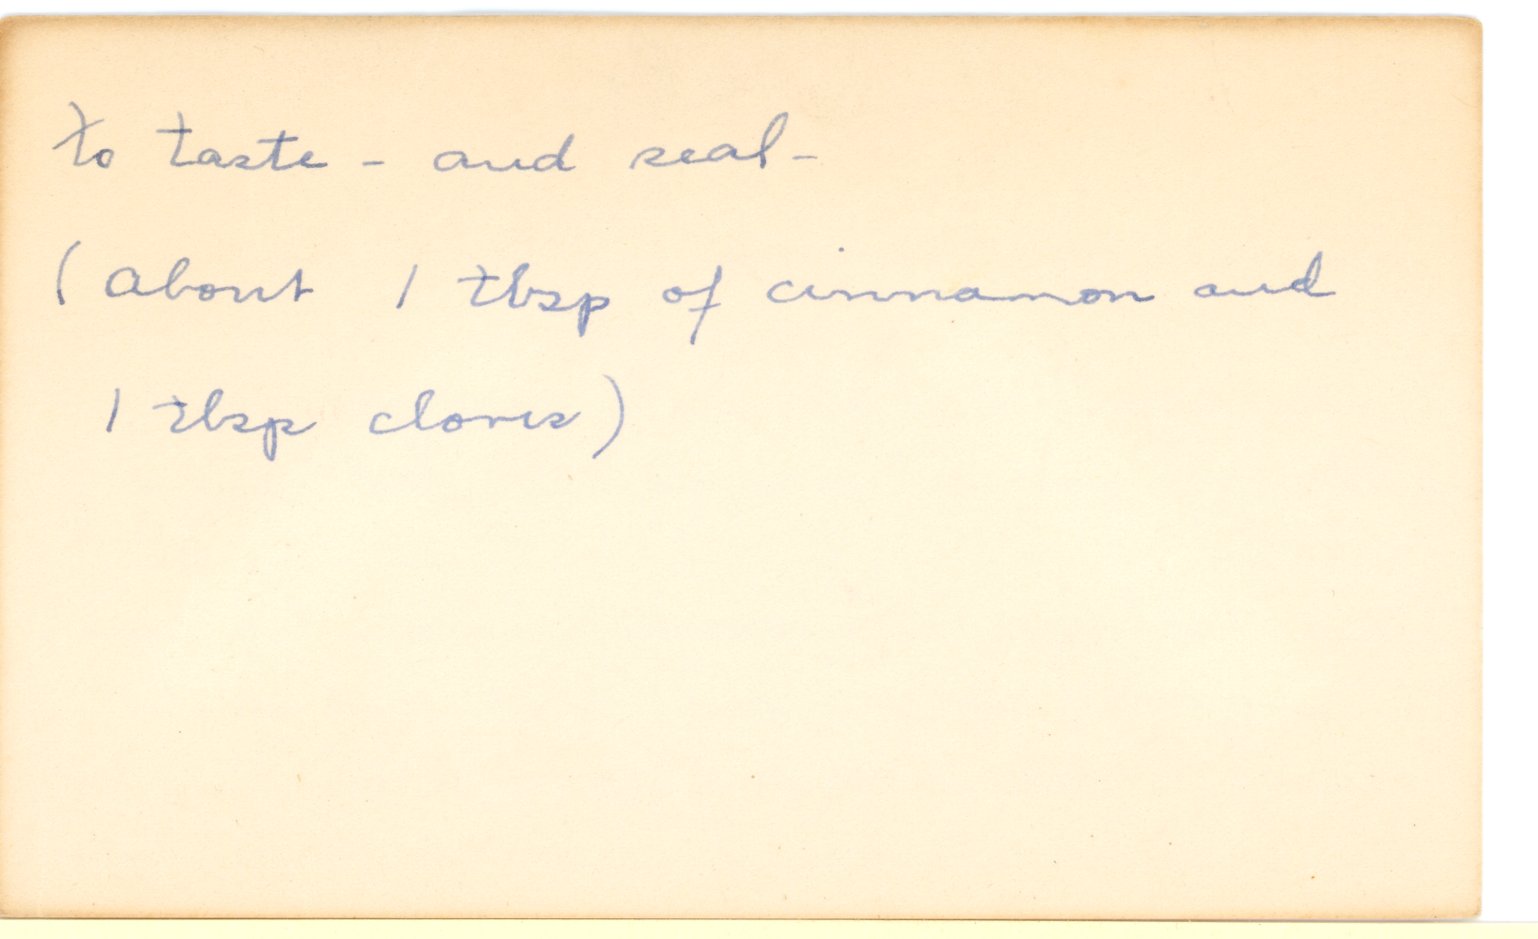 to taste - and seal -
(about 1 tbsp of cinnamon and
1 tbsp cloves)